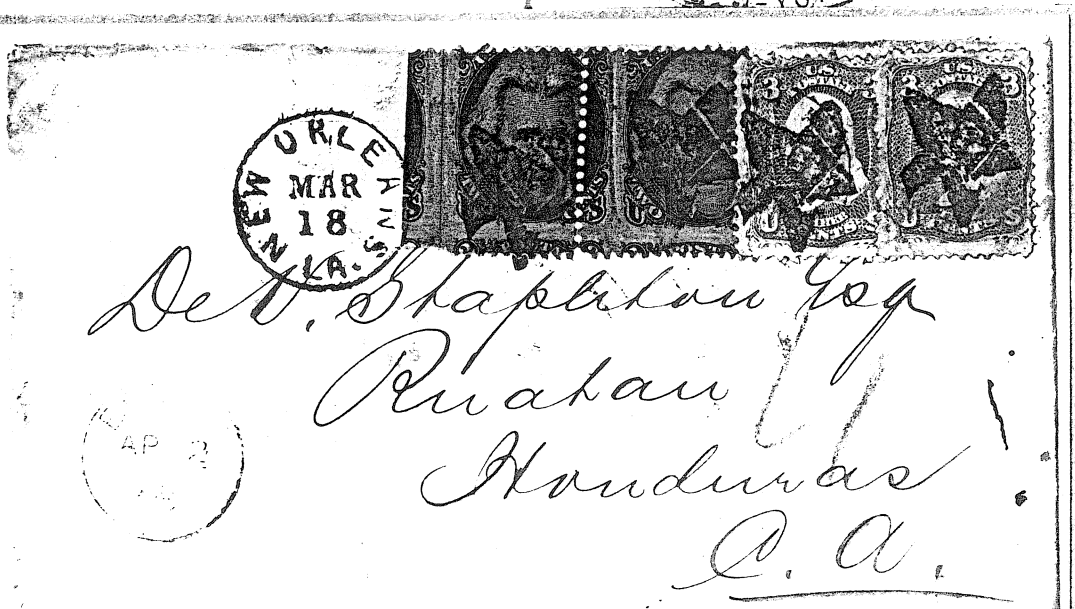 NEW ORLEANS
MAR
18
LA.
U.S.
3
U.S.
3
DeW. Stapleton Esq
Ruatan
Honduras
C. A.
AP 2